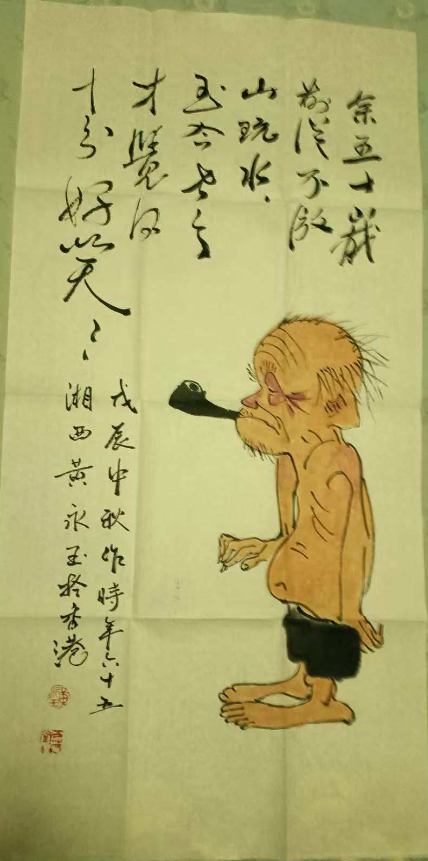 余五十歲
前從不游
山玩水、
至今老了
才覺得
十分好笑々々
戊辰中秋作時年六十五
湘西黄永玉於香港